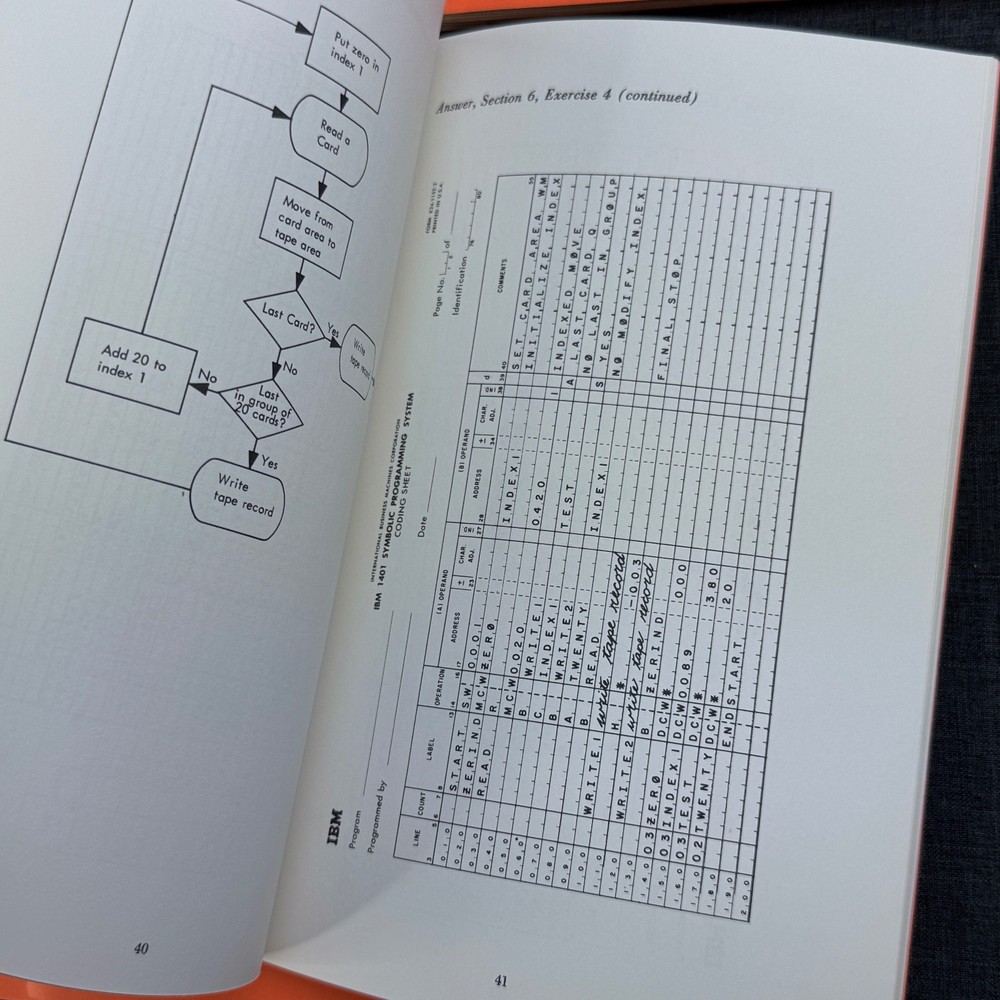 Put zero in
index 1
Read a
Card
Move from
card area to
tape area
Last Card?
Yes
Write
tape record
No
Last
in group of
20 cards?
No
Add 20 to
index 1
Yes
Write
tape record
40
Answer, Section 6, Exercise 4 (continued)
FORM X24-1152-2
PRINTED IN U.S.A.
INTERNATIONAL BUSINESS MACHINES CORPORATION
IBM 1401 SYMBOLIC PROGRAMMING SYSTEM
CODING SHEET
IBM
Program
Programmed by
Date
Page No. of
Identification 76 80
LINE COUNT LABEL OPERATION (A) OPERAND (B) OPERAND d COMMENTS
ADDRESS ± CHAR. ADJ. IND ADDRESS ± CHAR. ADJ. IND
3 5 6 7 8 13 14 16 17 23 27 28 34 38 39 40 55
010 START SW 0001 SET CARD AREA WM
020 ZERIND MCW ZERØ INDEX1 INITIALIZE INDEX
030 READ R
040 MCW 0020 0420 1 INDEXED MØVE
050 B WRITE1 A LAST CARD Q
060 C INDEX1 TEST NØ LAST IN GRØUP
070 B WRITE2 S YES
080 A TWENTY INDEX1 NØ MØDIFY INDEX
090 B READ
100 WRITE1 write tape record
110 H * -003 FINAL STØP
120 WRITE2 write tape record
130 B ZERIND
140 03 ZERØ DCW * 000
150 03 INDEX1 DCW 0089
160 03 TEST DCW * 380
170 02 TWENTY DCW * 20
180 END START
190
200
41